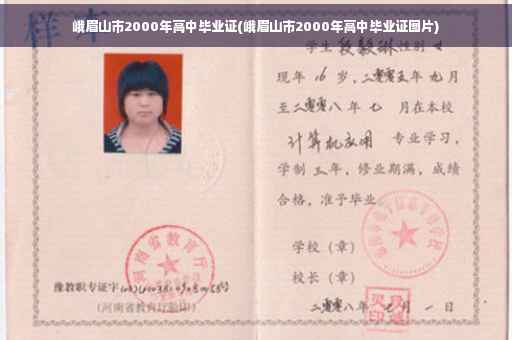 峨眉山市2000年高中毕业证(峨眉山市2000年高中毕业证图片)
样本
学生段毅琳性别女
现年16岁，二零零五年九月
至二零零八年七月在本校
计算机应用 专业学习，
学制三年，修业期满，成绩
合格，准予毕业
学校（章）
校长（章）
二零零八年七月一日
河南省教育厅
豫教职专证字
(河南省教育厅验印)